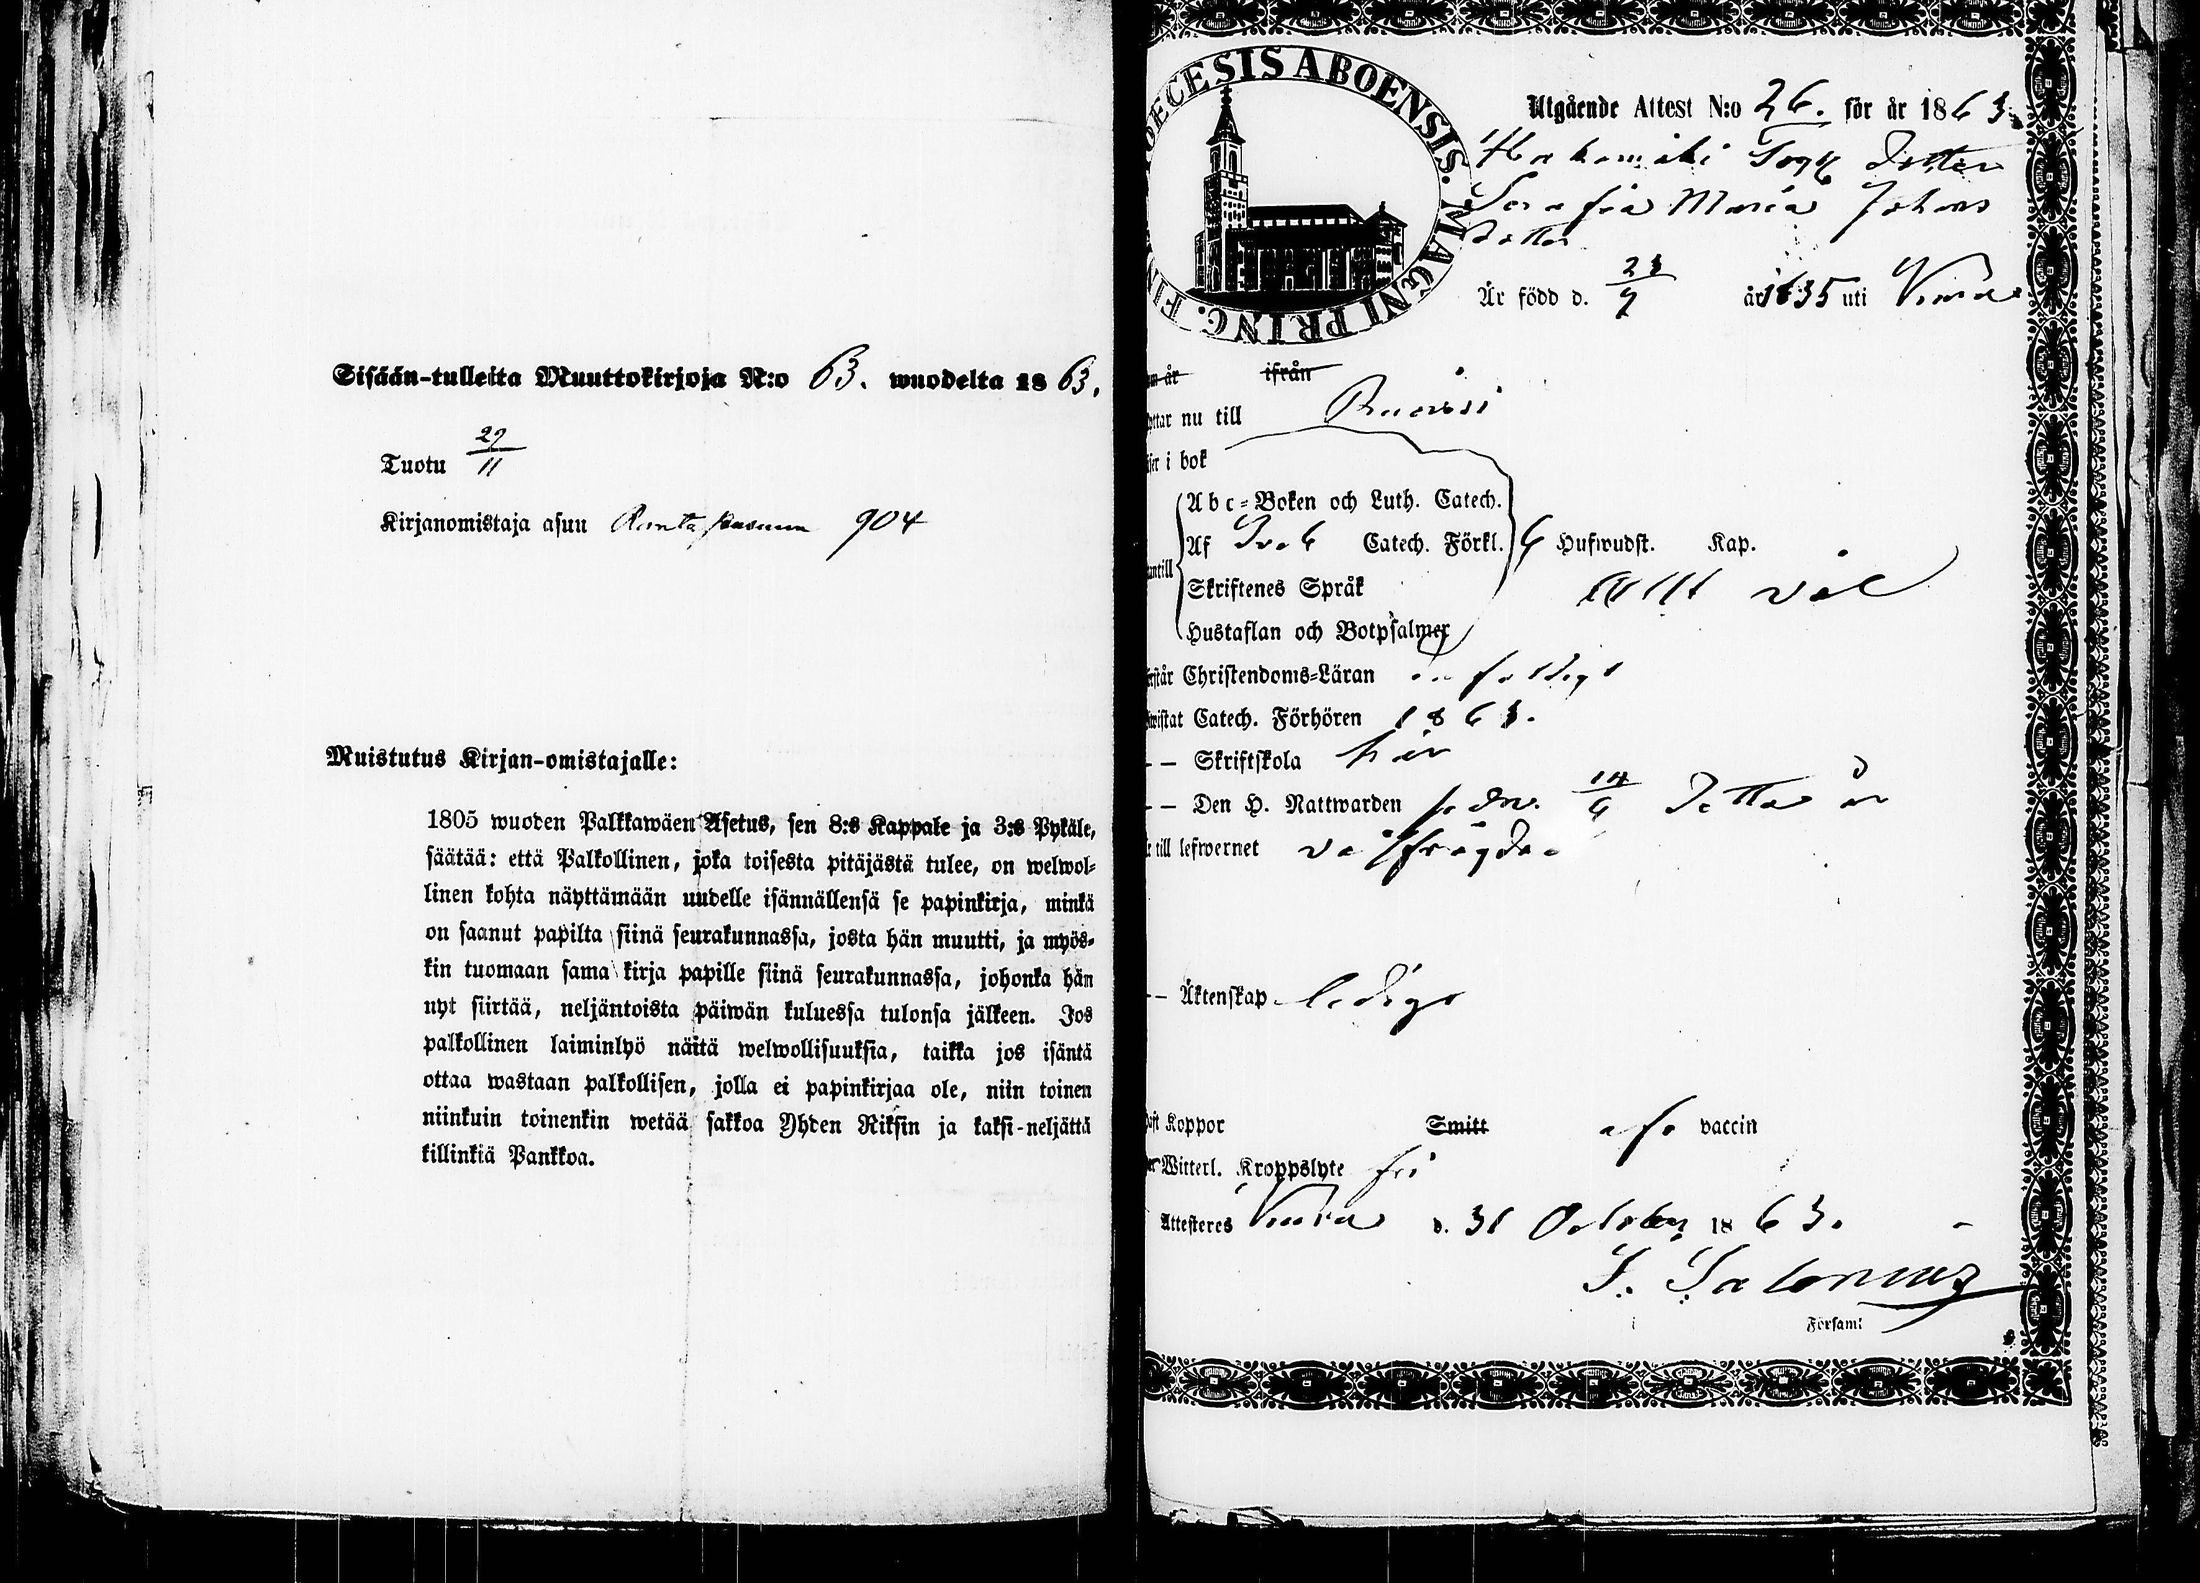 Sisään-tulleita Muuttokirjoja N:o 63. wuodelta 1863.
Tuotu 29/11
Kirjanomistaja asuu 904
Muistutus Kirjan-omistajalle:
1805 wuoden Palkkawäen Asetus, sen 8:s Kappale ja 3:s Pykäle,
säätää: että Palkollinen, joka toisesta pitäjästä tulee, on welwol-
linen kohta näyttämään uudelle isännällensä se papinkirja, minkä
on saanut papilta siinä seurakunnassa, josta hän muutti, ja myös-
kin tuomaan sama kirja papille siinä seurakunnassa, johonka hän
nyt siirtää, neljäntoista päiwän kuluessa tulonsa jälkeen. Jos
palkollinen laiminlyö näitä welwollisuuksia, taikka jos isäntä
ottaa wastaan palkollisen, jolla ei papinkirjaa ole, niin toinen
niinkuin toinenkin wetää sakkoa Yhden Riksin ja kaksi-neljättä
killinkiä Pankkoa.
ECESIS ABOENSIS. MAGNI PRINC. FIN
Utgående Attest N:o 26. för år 1863.
dotter
Serafia Maria Johans
dotter
Är född d. 23/9 år 1835 uti
år ifrån
nu till
i bok
Abc-Boken och Luth. Catech.
Af Catech. Förkl. Hufwudst. Kap.
Skriftenes Språk allt väl
Hustaflan och Botpsalmer
Christendoms-Läran enfaldigt
Catech. Förhören 1863.
-- Skriftskola här
-- Den H. Nattwarden sedn. 14/6 detta år
till lefwernet välfrägdad
-- Äktenskap ledig
Koppor Smitt af vaccin
Witterl. Kroppslyte fri
Attesteres d. 31 October 1863.
Församl